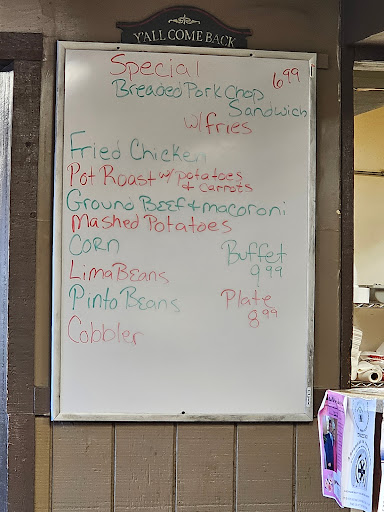 Y'ALL COME BACK
Special 6.99
Breaded Pork Chop
Sandwich
w/fries
Fried Chicken
Pot Roast w/ potatoes
& carrots
Ground Beef & macoroni
Mashed Potatoes
Corn
Buffet
9.99
Lima Beans
Pinto Beans
Plate
8.99
Cobbler